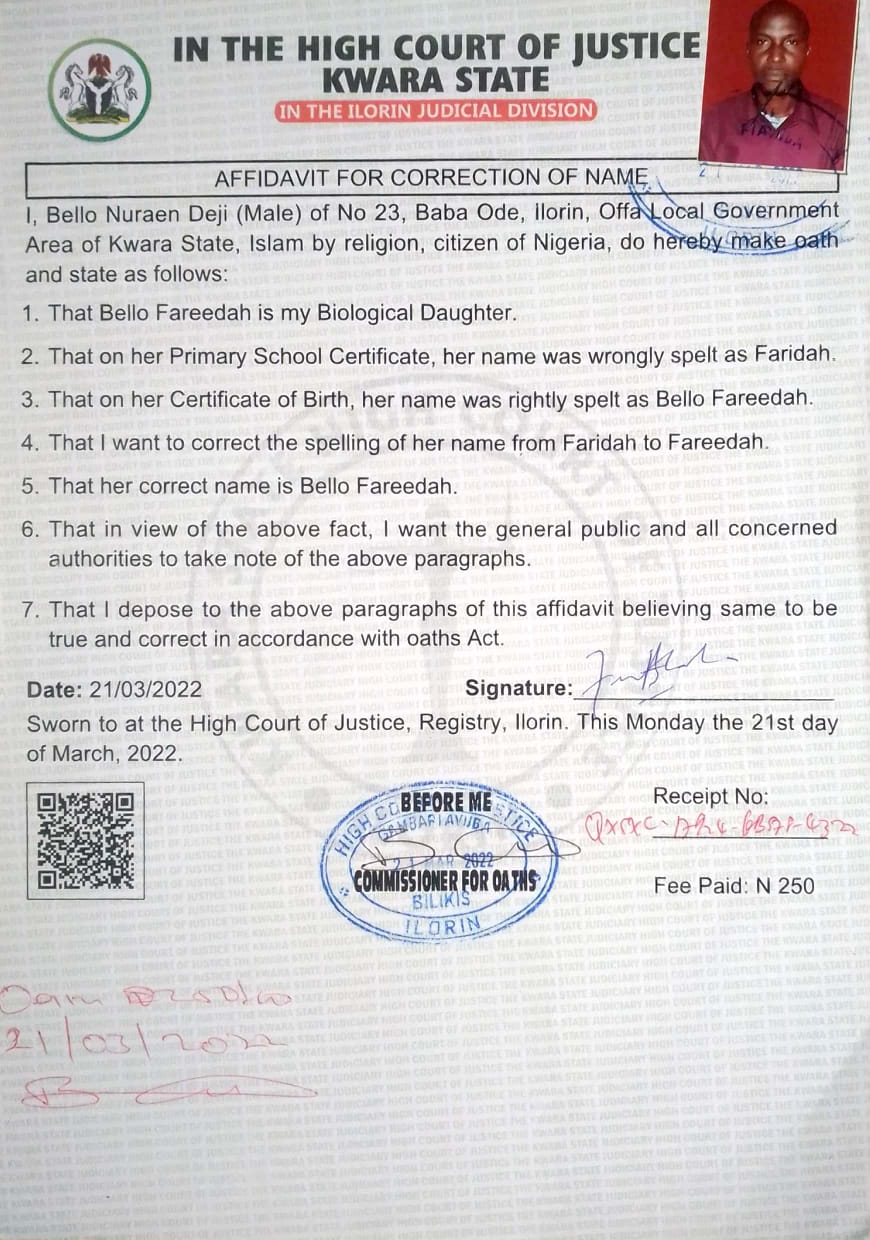 IN THE HIGH COURT OF JUSTICE
KWARA STATE
IN THE ILORIN JUDICIAL DIVISION
AFFIDAVIT FOR CORRECTION OF NAME
I, Bello Nuraen Deji (Male) of No 23, Baba Ode, ilorin, Offa Local Government
Area of Kwara State, Islam by religion, citizen of Nigeria, do hereby make oath
and state as follows:
1. That Bello Fareedah is my Biological Daughter.
2. That on her Primary School Certificate, her name was wrongly spelt as Faridah.
3. That on her Certificate of Birth, her name was rightly spelt as Bello Fareedah.
4. That I want to correct the spelling of her name from Faridah to Fareedah.
5. That her correct name is Bello Fareedah.
6. That in view of the above fact, I want the general public and all concerned
authorities to take note of the above paragraphs.
7. That I depose to the above paragraphs of this affidavit believing same to be
true and correct in accordance with oaths Act.
Date: 21/03/2022 Signature:
Sworn to at the High Court of Justice, Registry, Ilorin. This Monday the 21st day
of March, 2022.
BEFORE ME
21 MAR 2022
COMMISSIONER FOR OATHS
BILIKIS
ILORIN
Receipt No:
Fee Paid: N 250
21/03/2022